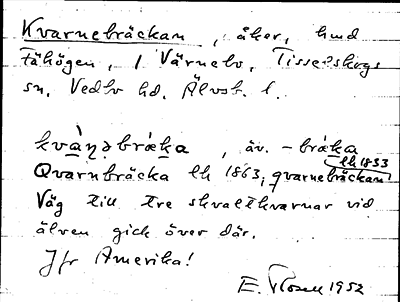 Kvarnebräckan, åker, hmd
Fähögen, 1 Värnebo, Tisselskogs
sn, Vedbo hd, Älvsb. l.
kvà̱ṇəbræ̀ka, äv. -bræka
lh 1833
Qvarnbräcka lh 1863, qvarnebräckan
Väg till tre skvaltkvarnar vid
älven gick över där.
Jfr Amerika!
E. Rosell 1952